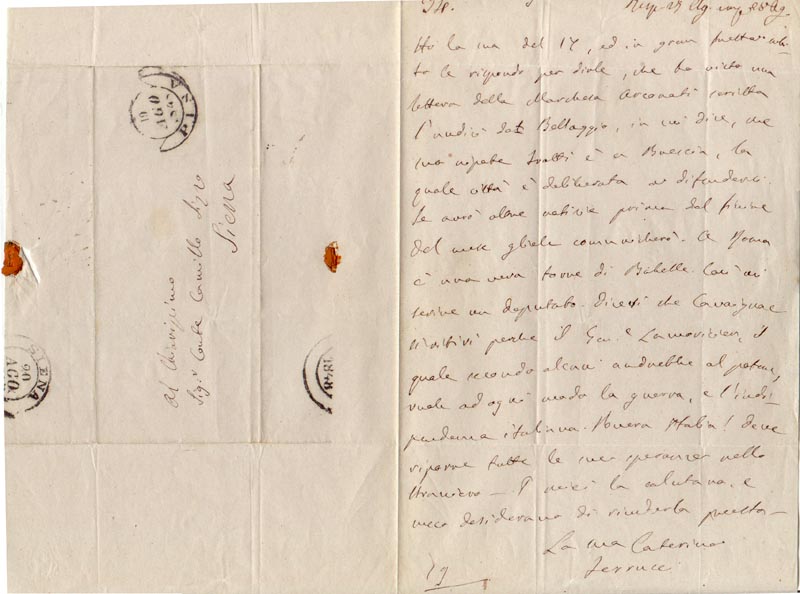 PISA
19
AGO
Al Chiarissimo
Sig.r Conte Camillo
Siena
SIENA
20
AGO
1848
Ho la sua del 17, ed in gran fretta
to le rispondo per dirle, che ho visto una
lettera della Marchesa Arconati scritta
da Bellaggio, in cui dice, che
suo nipote è a Brescia, la
quale città è deliberata a difendersi.
Se avrò altre notizie prima del finire
del mese gliele comunicherò. A Roma
è una vera torre di Babelle. Così mi
scrive un deputato. Dicesi che Cavaignac
si ritiri perche il Gen.e Lamoriciere, il
quale secondo alcuni andrebbe al potere,
vuole ad ogni modo la guerra, e l'indi-
pendenza italiana. Povera Italia! deve
riporre tutte le sue speranze nello
straniero — I miei la salutano, e
meco desiderano di rivederla presto —
La sua Caterina
Ferrucci